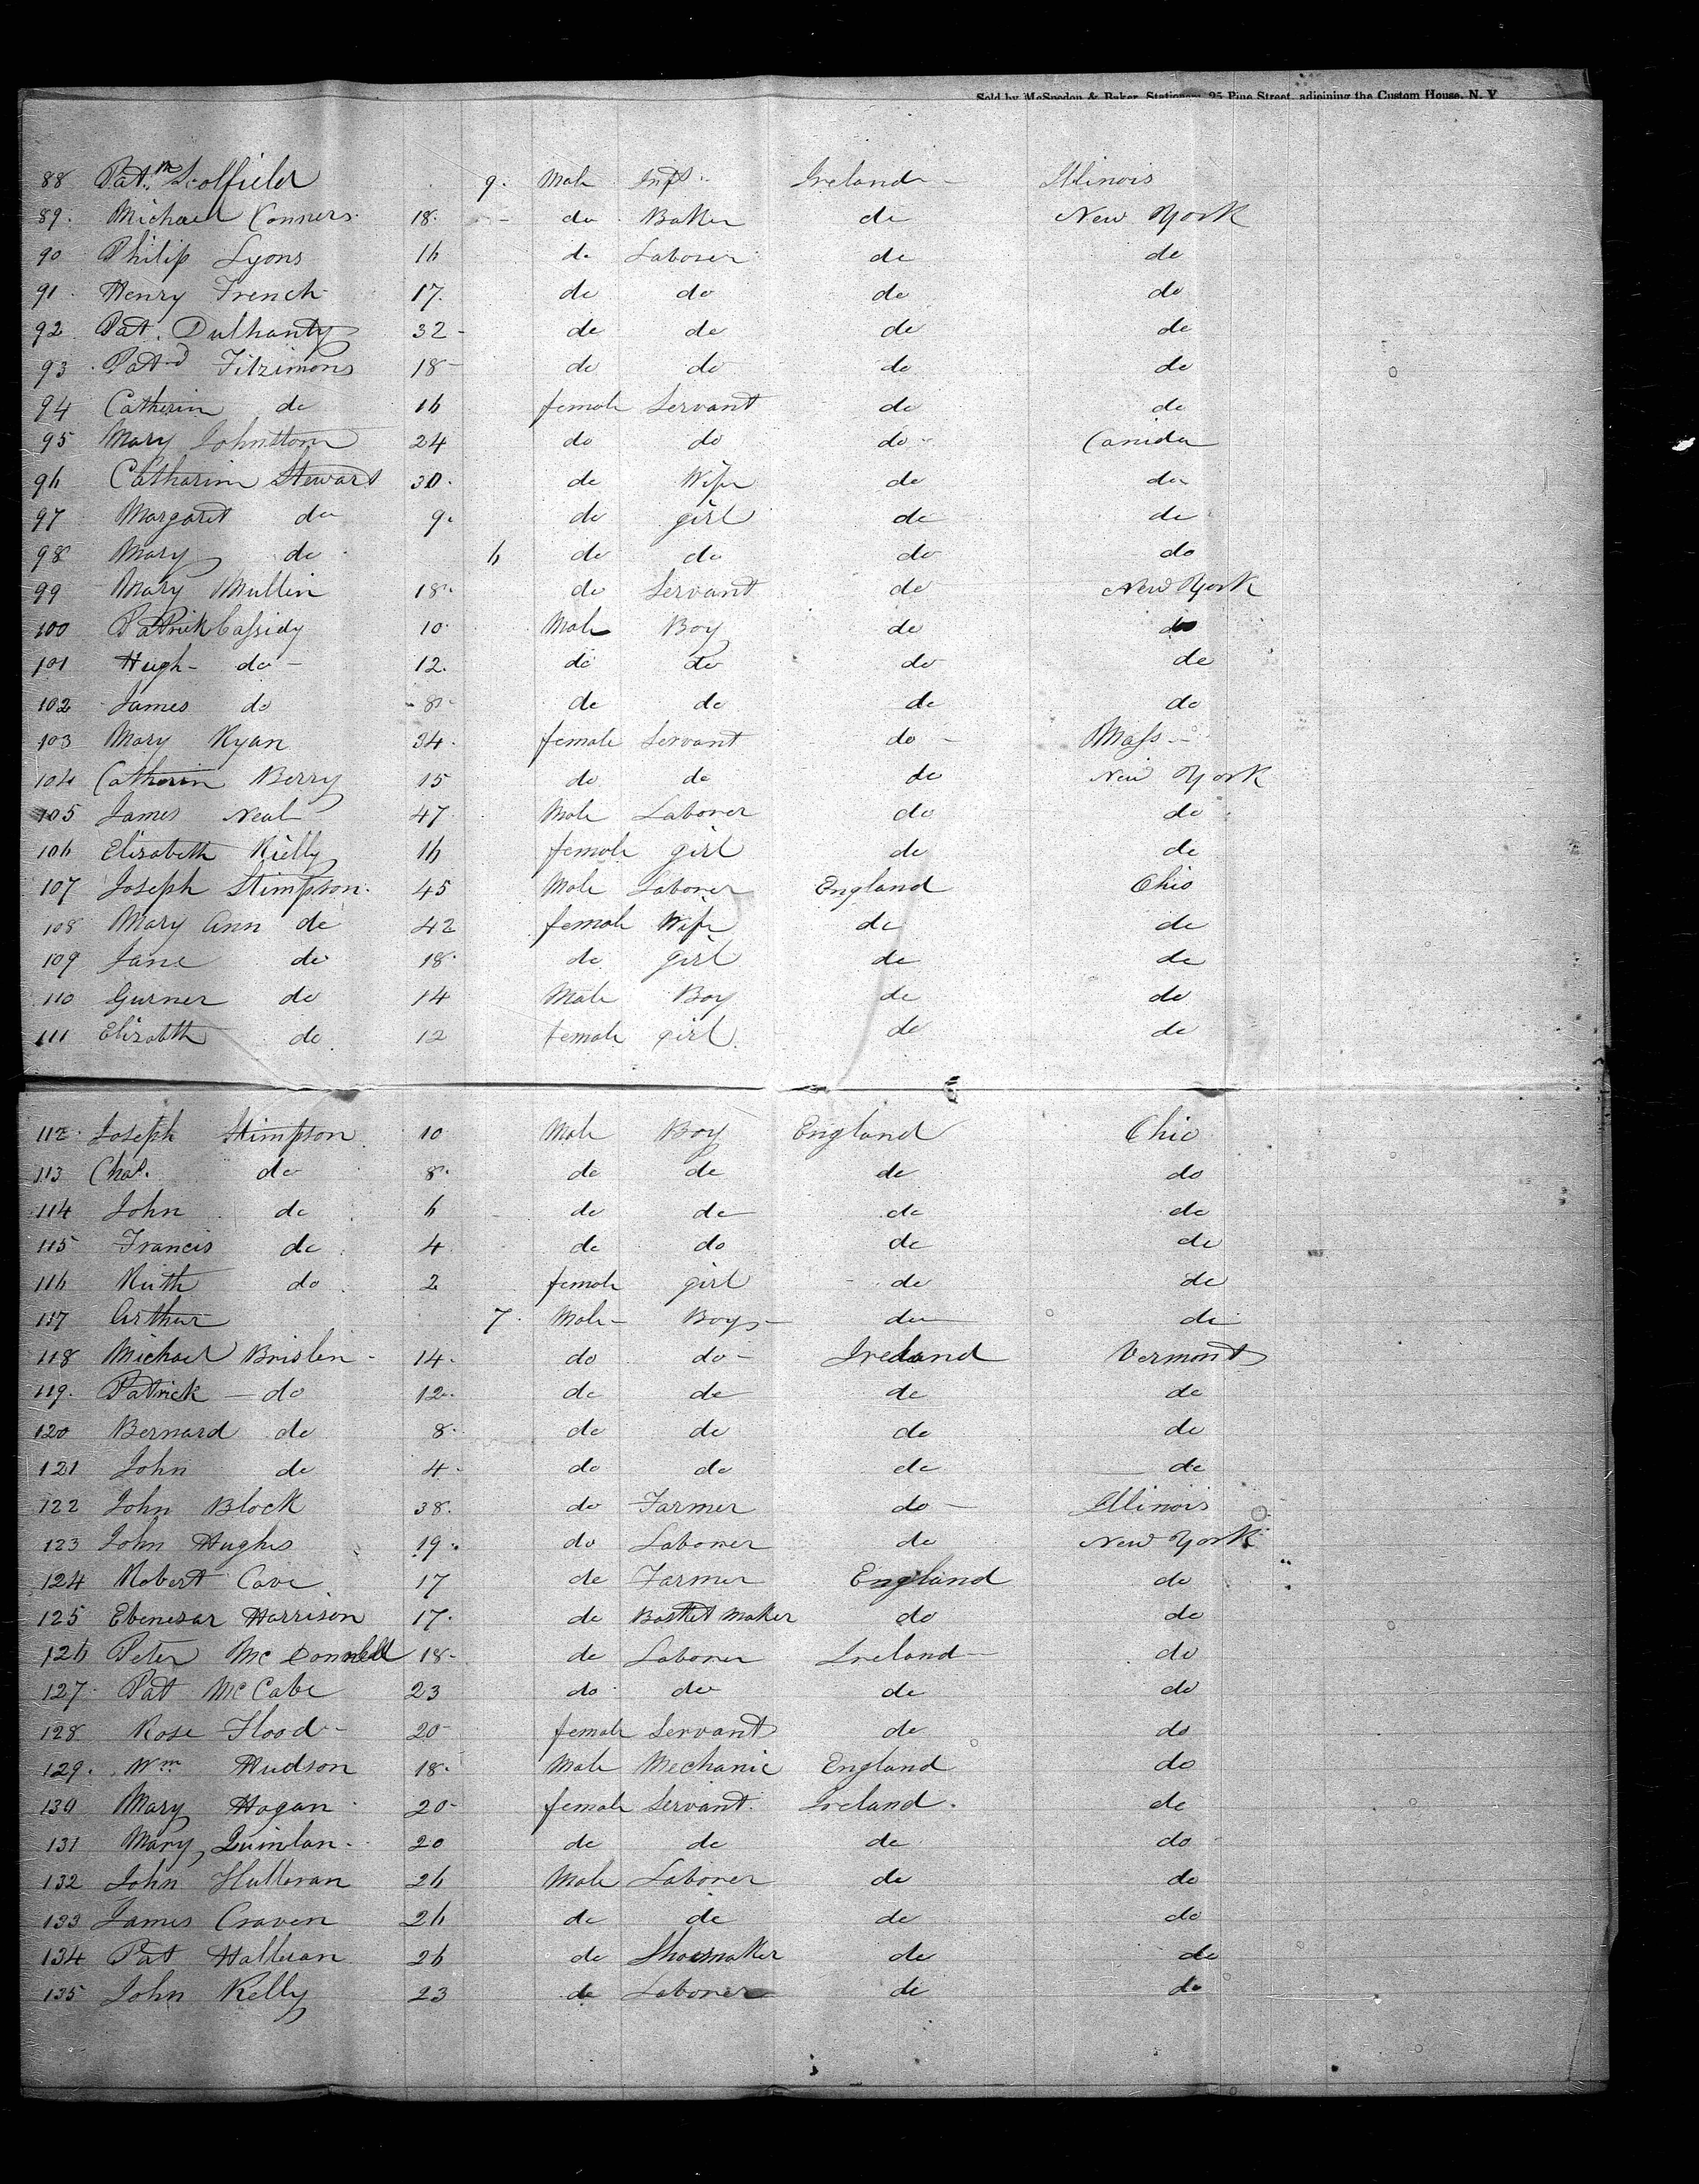 Sold by McSpedon & Baker, Stationers, 25 Pine Street, adjoining the Custom House, N. Y.
88 Pat. Scolfield 9. Male Inft. Ireland Illinois
89. Michael Conners 18. do Baker do New York
90 Philip Lyons 16 do Laborer do do
91 Henry French 17. do do do do
92 Pat. Dulhanty 32 do do do do
93 Patd Fitzimons 18 do do do do
94 Catherin do 16 female Servant do do
95 Mary Johnston 24 do do do Canida
96 Catharin Steward 30. do Wife do do
97 Margaret do 9. do girl do do
98 Mary do 6 do do do do
99 Mary Mullin 18 do Servant do New York
100 Patrick Cassidy 10 Male Boy do do
101 Hugh do 12. do do do do
102 James do 8 do do do do
103 Mary Ryan 34. female Servant do Mass
104 Catherin Berry 15 do do do New York
105 James Neal 47 Male Laborer do do
106 Elizabeth Rielly 16 female girl do do
107 Joseph Stimpson. 45 Male Laborer England Ohio
108 Mary Ann do 42 female Wife do do
109 Jane do 18. do girl do do
110 Gurner do 14 Male Boy do do
111 Elizabth do 12 female girl do do
112. Joseph Stimpson 10 Male Boy England Ohio
113 Chas. do 8. do do do do
114 John do 6 do do do do
115 Francis do 4 do do do do
116 Ruth do 2 female girl do do
117 Arthur 7. Male Boy do do
118 Michael Brislin 14. do do Ireland Vermont
119. Patrick do 12. do do do do
120 Bernard do 8. do do do do
121 John do 4 do do do do
122 John Block 38. do Farmer do Illinois
123 John Hughs 19. do Laborer do New York
124 Robert Cave 17 do Farmer England do
125 Ebenezar Harrison 17. do Basket Maker do do
126 Peter McDonnell 18 do Laborer Ireland do
127. Pat McCabe 23 do do do do
128 Rose Flood 20 female Servant do do
129. Wm Hudson 18. Male Mechanic England do
130 Mary Hogan 20 female Servant. Ireland. do
131 Mary Quinlan. 20 do do do do
132 John Halleran 26 Male Laborer do do
133 James Craven 26 do do do do
134 Pat Halleran 26 do Shoemaker do do
135 John Kelly 23 do Laborer do do